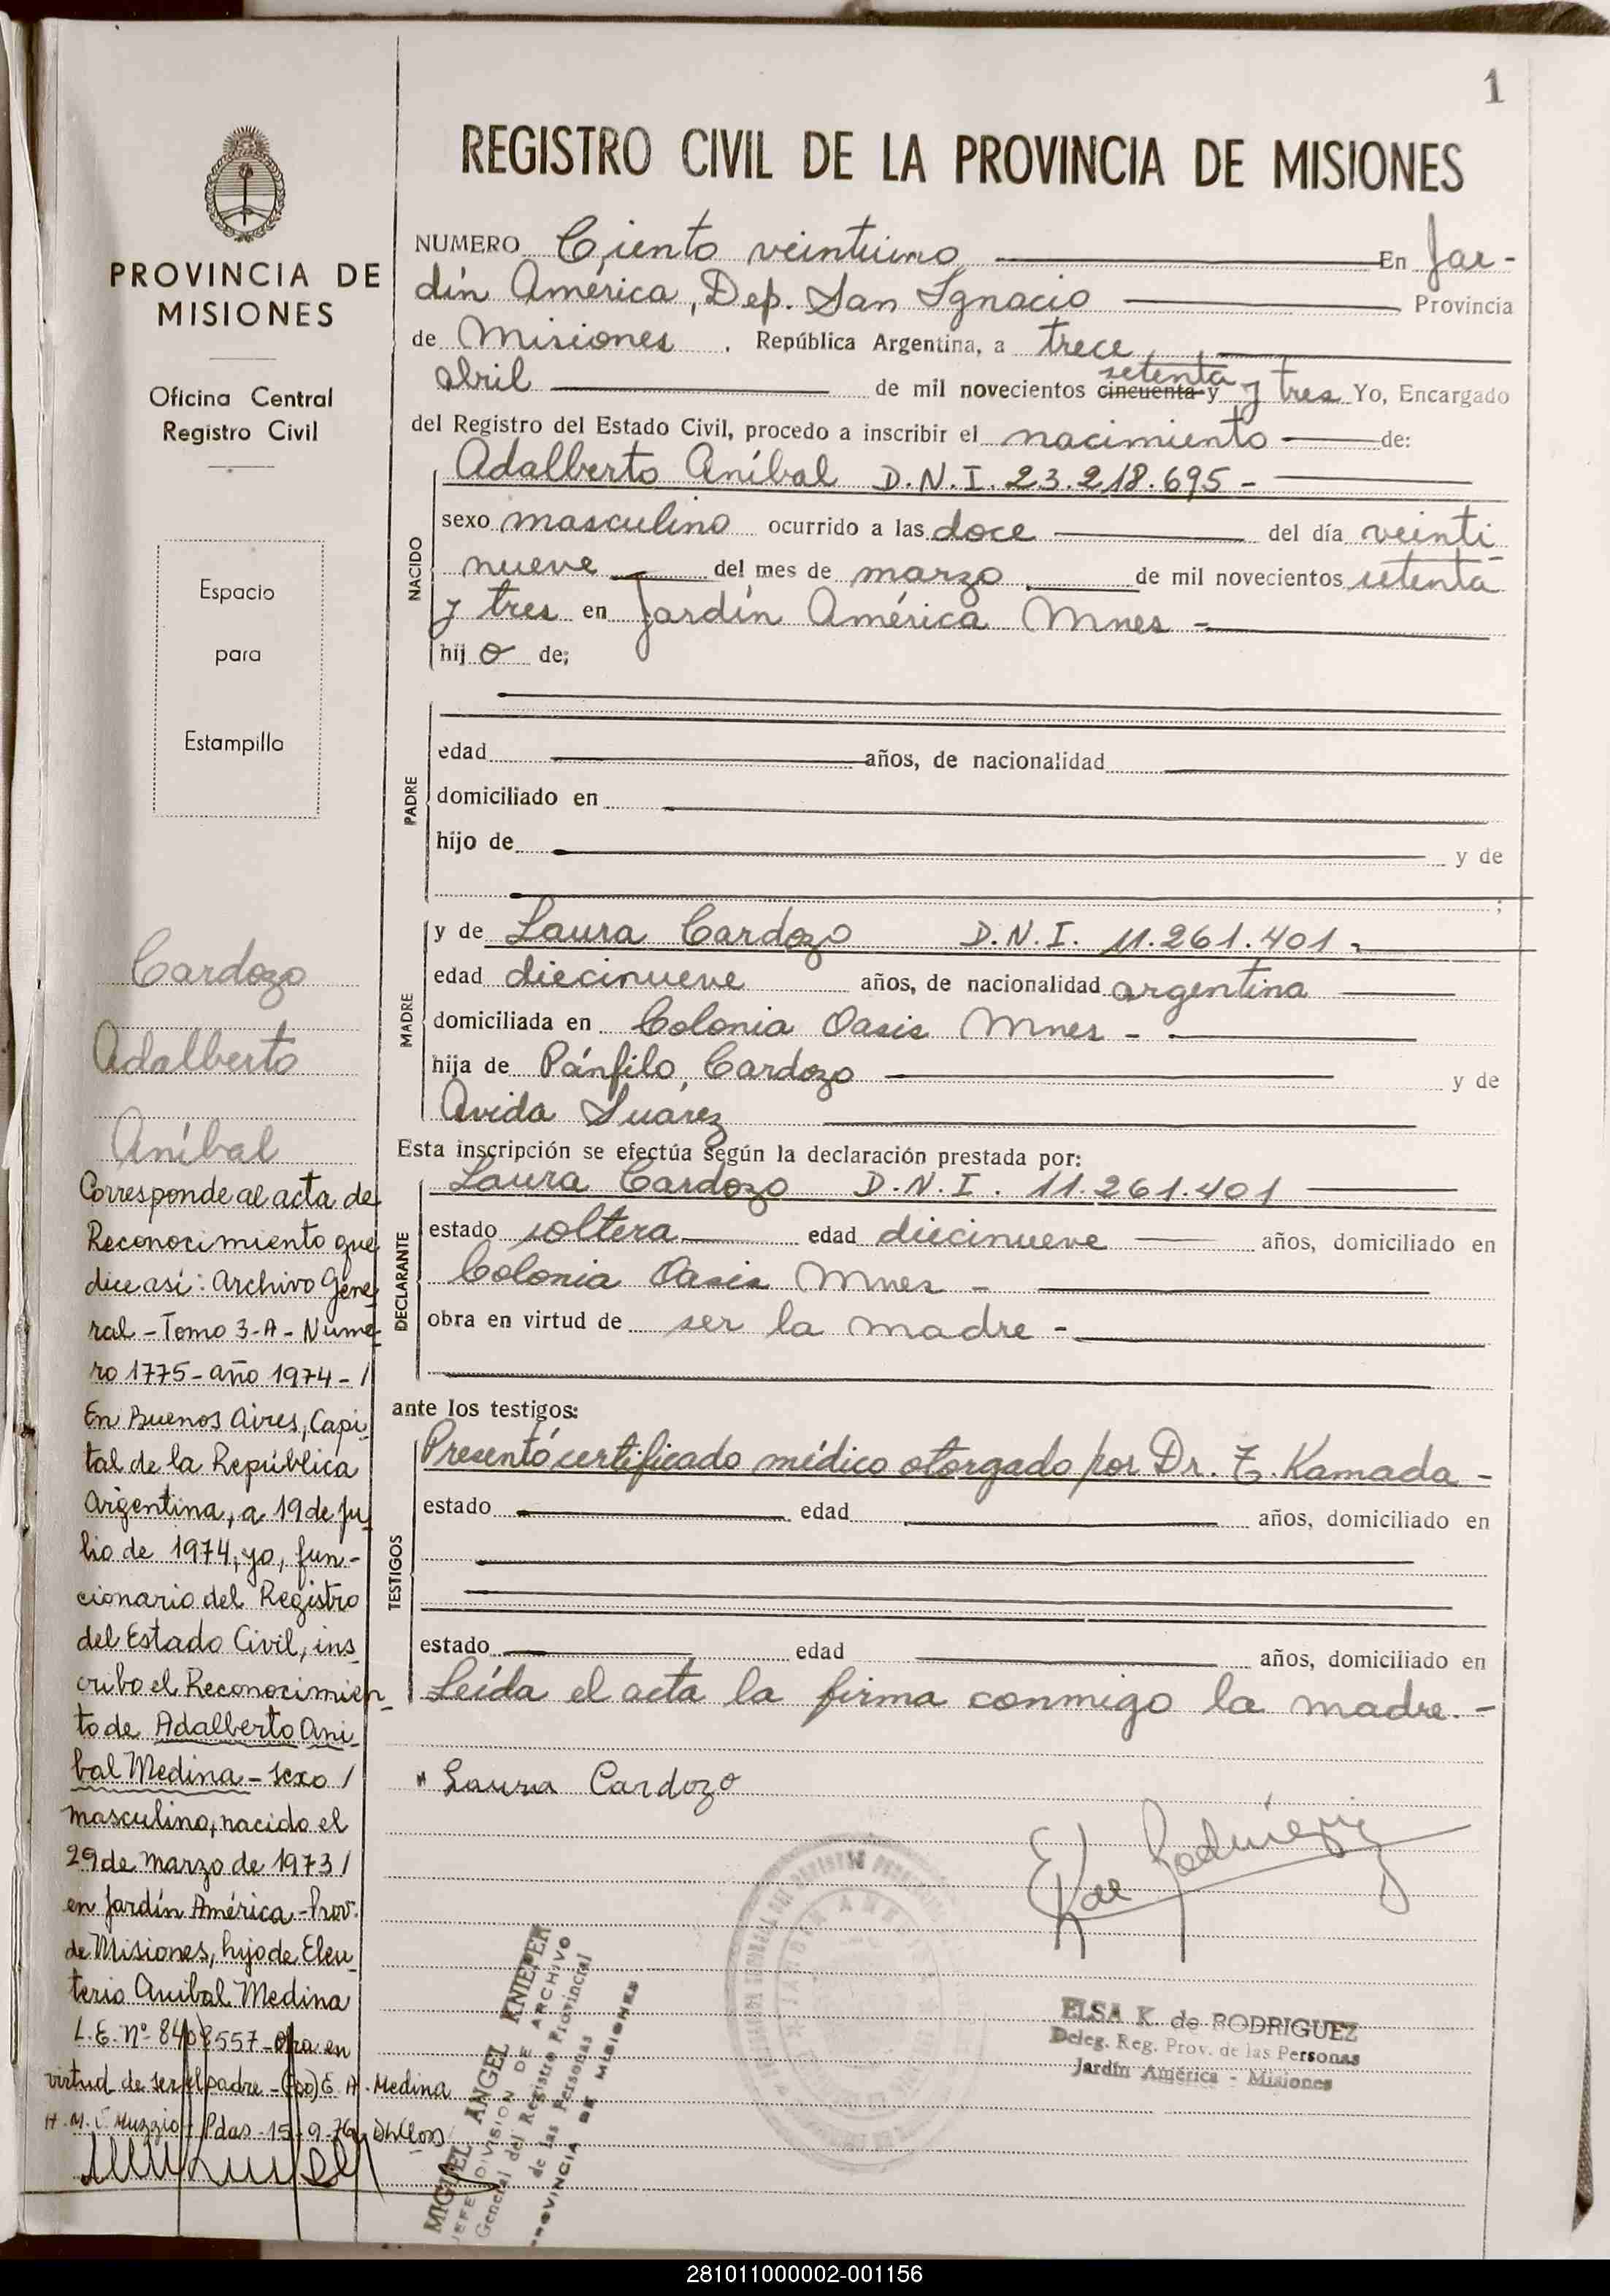 1
REGISTRO CIVIL DE LA PROVINCIA DE MISIONES
PROVINCIA DE
MISIONES
Oficina Central
Registro Civil
Espacio
para
Estampilla
NUMERO Ciento veintiuno En Jar-
dín América, Dep. San Ignacio Provincia
de Misiones, República Argentina, a trece
abril de mil novecientos cincuenta y setenta y tres Yo, Encargado
del Registro del Estado Civil, procedo a inscribir el nacimiento de:
NACIDO
Adalberto Aníbal D.N.I. 23.218.695 -
sexo masculino ocurrido a las doce del día veinti
nueve del mes de marzo de mil novecientos setenta
y tres en Jardín América Mnes -
hij o de;
PADRE
edad años, de nacionalidad
domiciliado en
hijo de y de
;
MADRE
y de Laura Cardozo D.N.I. 11.261.401 -
edad diecinueve años, de nacionalidad argentina
domiciliada en Colonia Oasis Mnes -
hija de Pánfilo Cardozo y de
Avida Suárez
Esta inscripción se efectúa según la declaración prestada por:
DECLARANTE
Laura Cardozo D.N.I. 11.261.401
estado soltera edad diecinueve años, domiciliado en
Colonia Oasis Mnes -
obra en virtud de ser la madre -
ante los testigos:
TESTIGOS
Presentó certificado médico otorgado por Dr. T. Kamada -
estado edad años, domiciliado en
estado edad años, domiciliado en
Leída el acta la firma conmigo la madre. -
Laura Cardozo
ELSA K. de RODRIGUEZ
Deleg. Reg. Prov. de las Personas
Jardín América - Misiones
MIGUEL ANGEL KNIEPER
JEFE DIVISION DE ARCHIVO
General del Registro Provincial
de las Personas
PROVINCIA DE MISIONES
Cardozo
Adalberto
Aníbal
Corresponde al acta de
Reconocimiento que
dice así: Archivo Gene
ral - Tomo 3-A - Nume
ro 1775 - año 1974 - /
En Buenos Aires, Capi
tal de la República
Argentina, a 19 de Ju
lio de 1974, yo, fun-
cionario del Registro
del Estado Civil, ins
cribo el Reconocimien
to de Adalberto Aní
bal Medina - sexo /
masculino, nacido el
29 de marzo de 1973 /
en Jardín América - Prov.
de Misiones, hijo de Eleu
terio Anibal Medina
L.E. Nº 8408557 - obra en
virtud de ser el padre - (Fdo) E. A. Medina
H. M. C. Muzzio - Pdas. 15-9-76
281011000002-001156